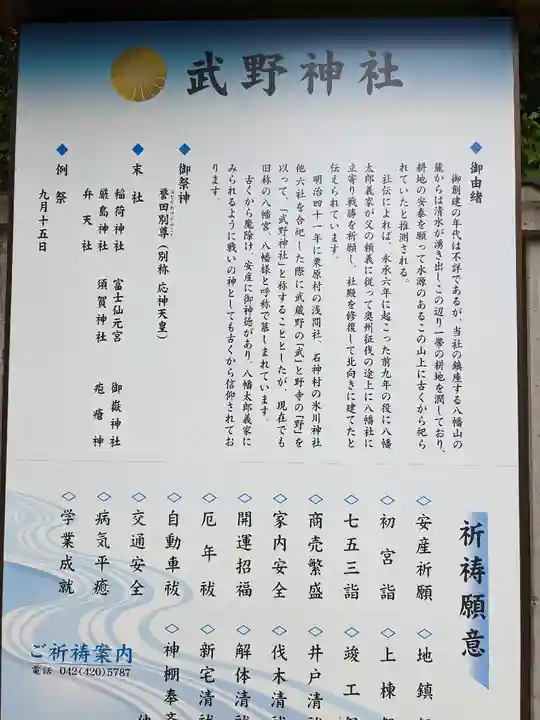 武野神社
◆御由緒
御創建の年代は不詳であるが、当社の鎮座する八幡山の
麓からは清水が湧き出しこの辺り一帯の耕地を潤しており、
耕地の安泰を願って水源のあるこの山上に古くから祀ら
れていたと推測される。
社伝によれば、永承六年に起こった前九年の役に八幡
太郎義家が父の頼義に従って奥州征伐の途上に八幡社に
立寄り戦勝を祈願し、社殿を修復して北向きに建てたと
伝えられています。
明治四十一年に栗原村の浅間社、石神村の氷川神社
他六社を合祀した際に武蔵野の「武」と野寺の「野」を
以って、「武野神社」と称することとしたが、現在でも
旧称の八幡宮、八幡様と呼称で慕しまれています。
古くから魔除け、安産に御神徳があり、八幡太郎義家に
みられるように戦いの神としても古くから信仰されてお
ります。
◆御祭神
誉田別尊(別称 応神天皇)
◆末社
稲荷神社 富士仙元宮 御嶽神社
厳島神社 須賀神社 疱瘡神
弁天社
◆例祭
九月十五日
祈祷願意
◇安産祈願 ◇地鎮
◇初宮詣 ◇上棟
◇七五三詣 ◇竣工
◇商売繁盛 ◇井戸清祓
◇家内安全 ◇伐木清祓
◇開運招福 ◇解体清祓
◇厄年祓 ◇新宅清祓
◇自動車祓 ◇神棚奉斎
◇交通安全
◇病気平癒
◇学業成就
他
ご祈祷案内
電話 042(420)5787